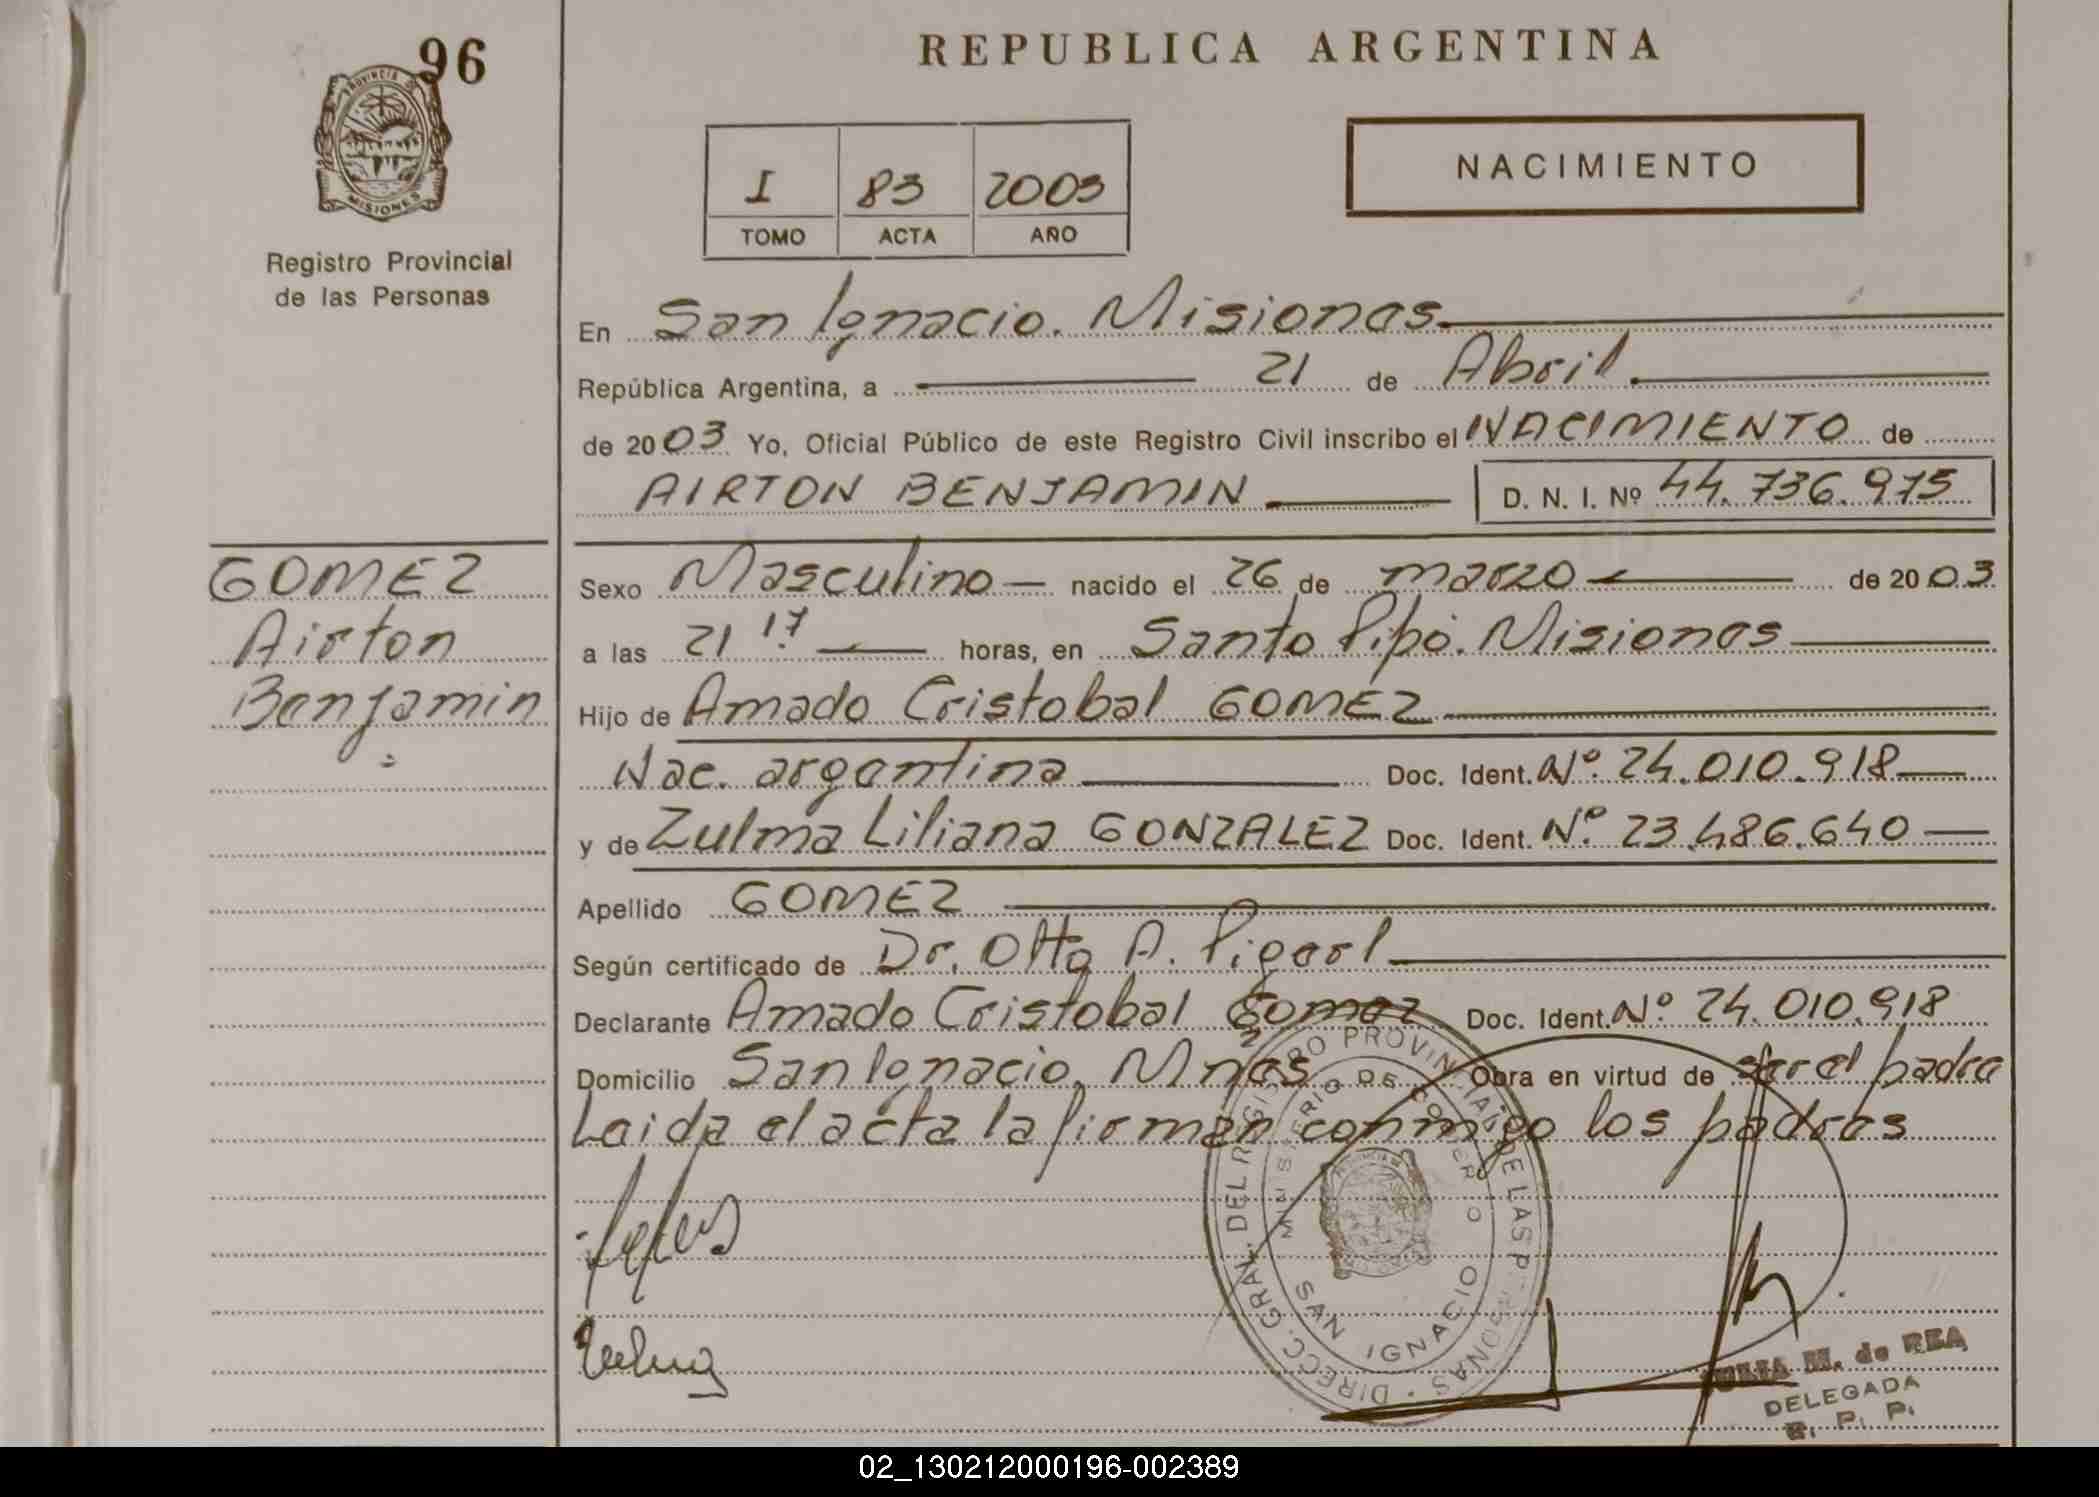 96
PROVINCIA DE
MISIONES
Registro Provincial
de las Personas
REPUBLICA ARGENTINA
I 83 2003
TOMO ACTA AÑO
NACIMIENTO
En San Ignacio. Misiones
República Argentina, a 21 de Abril
de 2003 Yo, Oficial Público de este Registro Civil inscribo el NACIMIENTO de
AIRTON BENJAMIN D. N. I. Nº 44.736.975
GOMEZ
Airton
Benjamin
Sexo Masculino nacido el 26 de marzo de 2003
a las 21 17 horas, en Santo Pipó. Misiones
Hijo de Amado Cristobal GOMEZ
Nac. argentina Doc. Ident. Nº. 24.010.918
y de Zulma Liliana GONZALEZ Doc. Ident. Nº. 23.486.640
Apellido GOMEZ
Según certificado de Dr. Otto A.
Declarante Amado Cristobal Gomez Doc. Ident. Nº 24.010.918
Domicilio San Ignacio, Mnes Obra en virtud de ser el padre
Leida el acta la firman conmigo los padres
DIRECC. GRAL. DEL REGISTRO PROVINCIAL DE LAS PERSONAS
MINISTERIO DE GOBIERNO
SAN IGNACIO
Zulma
JULIA M. de REA
DELEGADA
R. P. P.
02_130212000196-002389